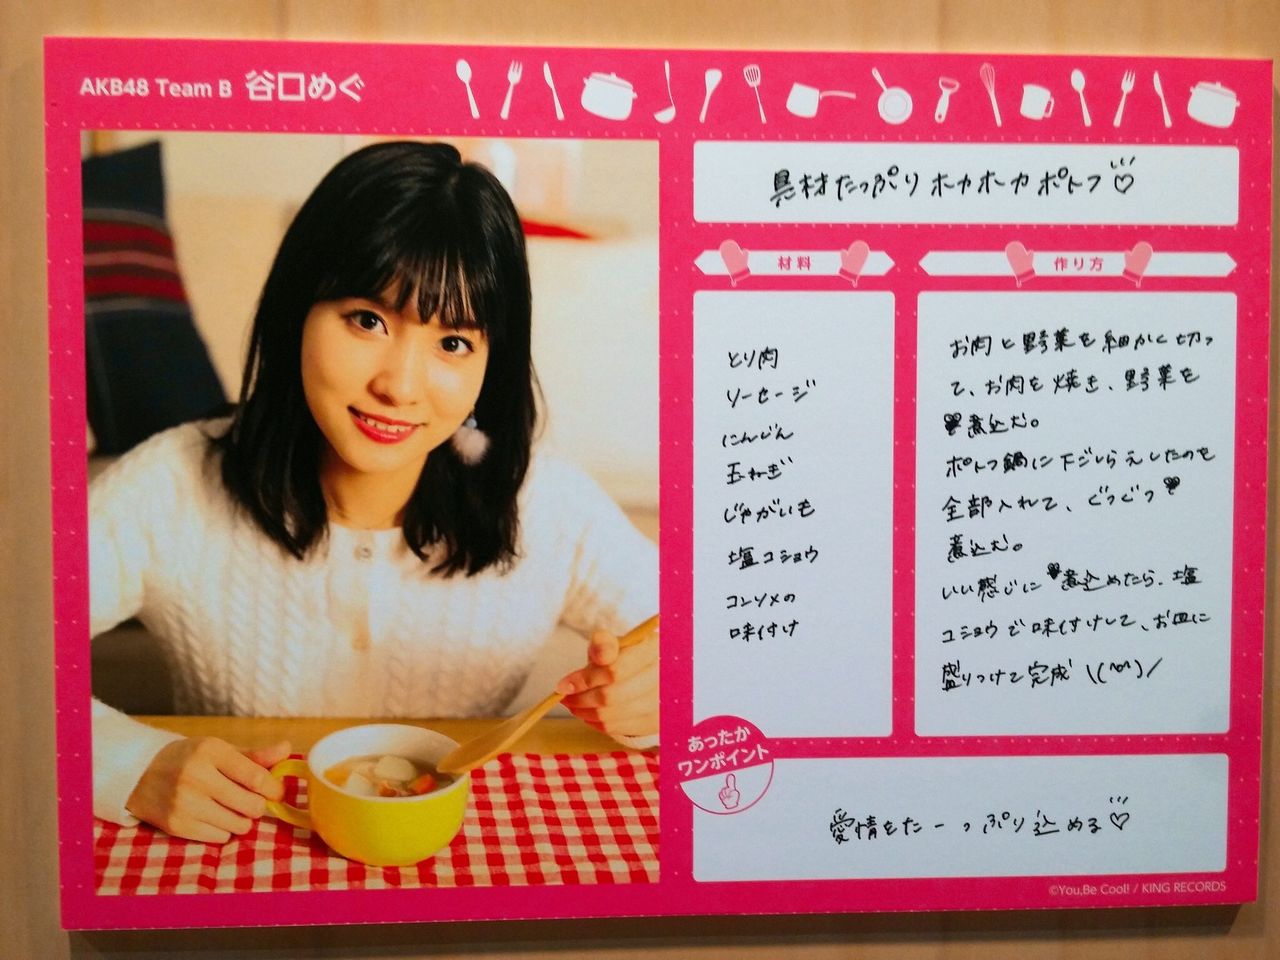 AKB48 Team B 谷口めぐ
具材たっぷりホカホカポトフ♡
材料
とり肉
ソーセージ
にんじん
玉ねぎ
じゃがいも
塩コショウ
コンソメの
味付け
作り方
お肉と野菜を細かく切っ
て、お肉を焼き、野菜を
煮込む。
ポトフ鍋に下ごしらえしたのを
全部入れて、ぐつぐつ
煮込む。
いい感じに煮込めたら、塩
コショウで味付けして、お皿に
盛りつけて完成 \(^o^)/
あったか
ワンポイント
愛情をたーっぷり込める♡
©You,Be Cool! / KING RECORDS